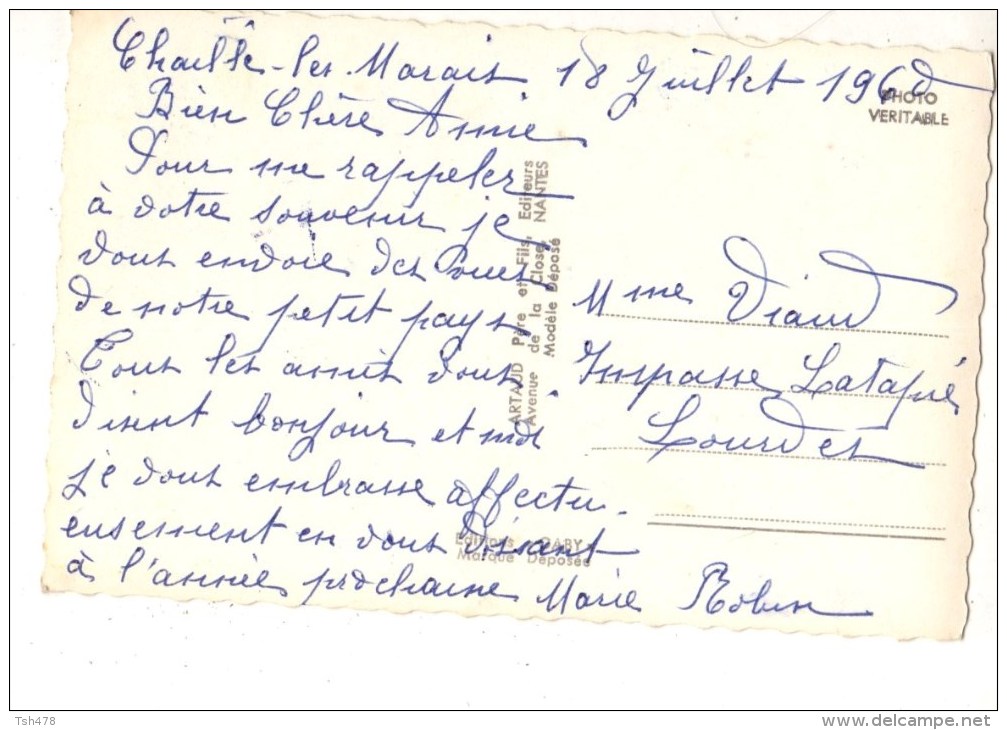 Chaillé-les-Marais 18 Juillet 1960
PHOTO
VERITABLE
Bien Chère Amie
Pour me rappeler
à votre souvenir je
vous envoie des vues
de notre petit pays
Tous les amis vous
disent bonjour et moi
je vous embrasse affectu-
eusement en vous disant
à l'année prochaine Marie Robin
Mme Viaud
Impasse Latapie
Lourdes
ARTAUD Père et Fils, Editeurs
Avenue de la Close, NANTES
Modèle Déposé
Editions GABY
Marque Déposée
Tsh478
www.delcampe.net